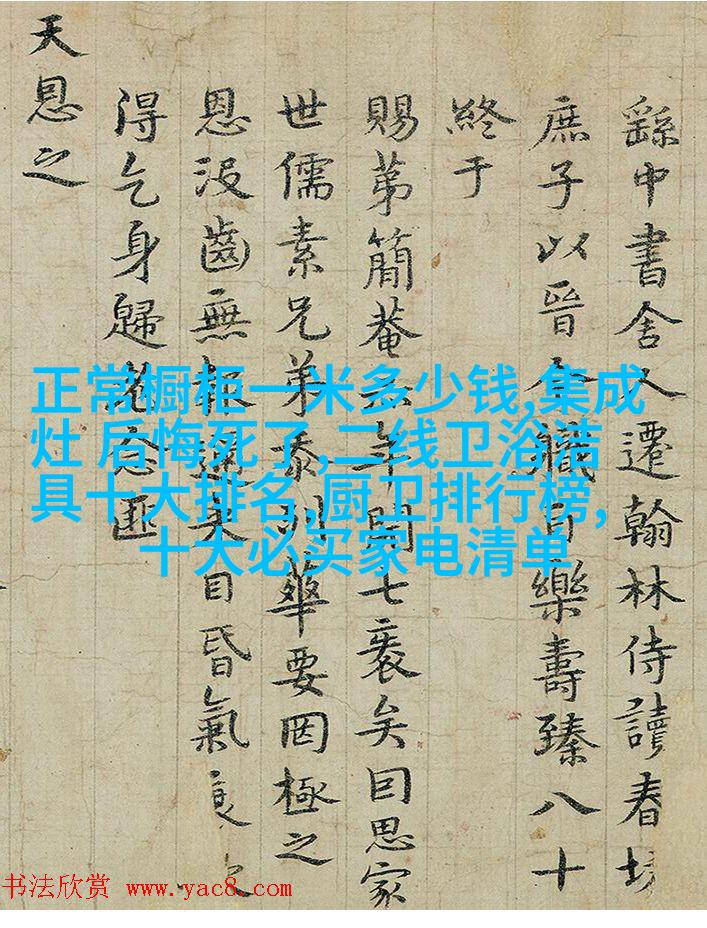 繇中書舍人遷翰林侍讀春坊
庶子以晉今職自樂壽臻八十
終于
賜第簡菴年開七袠矣囙思家
世儒素兄弟忝列華要罔極之
恩沒齒無報來目昏氣衰
得乞身歸念匪
天恩之
正常橱柜一米多少钱,集成
灶 后悔死了,二线卫浴洁
具十大排名,厨卫排行榜,
十大必买家电清单
书法欣赏 www.yac8.com